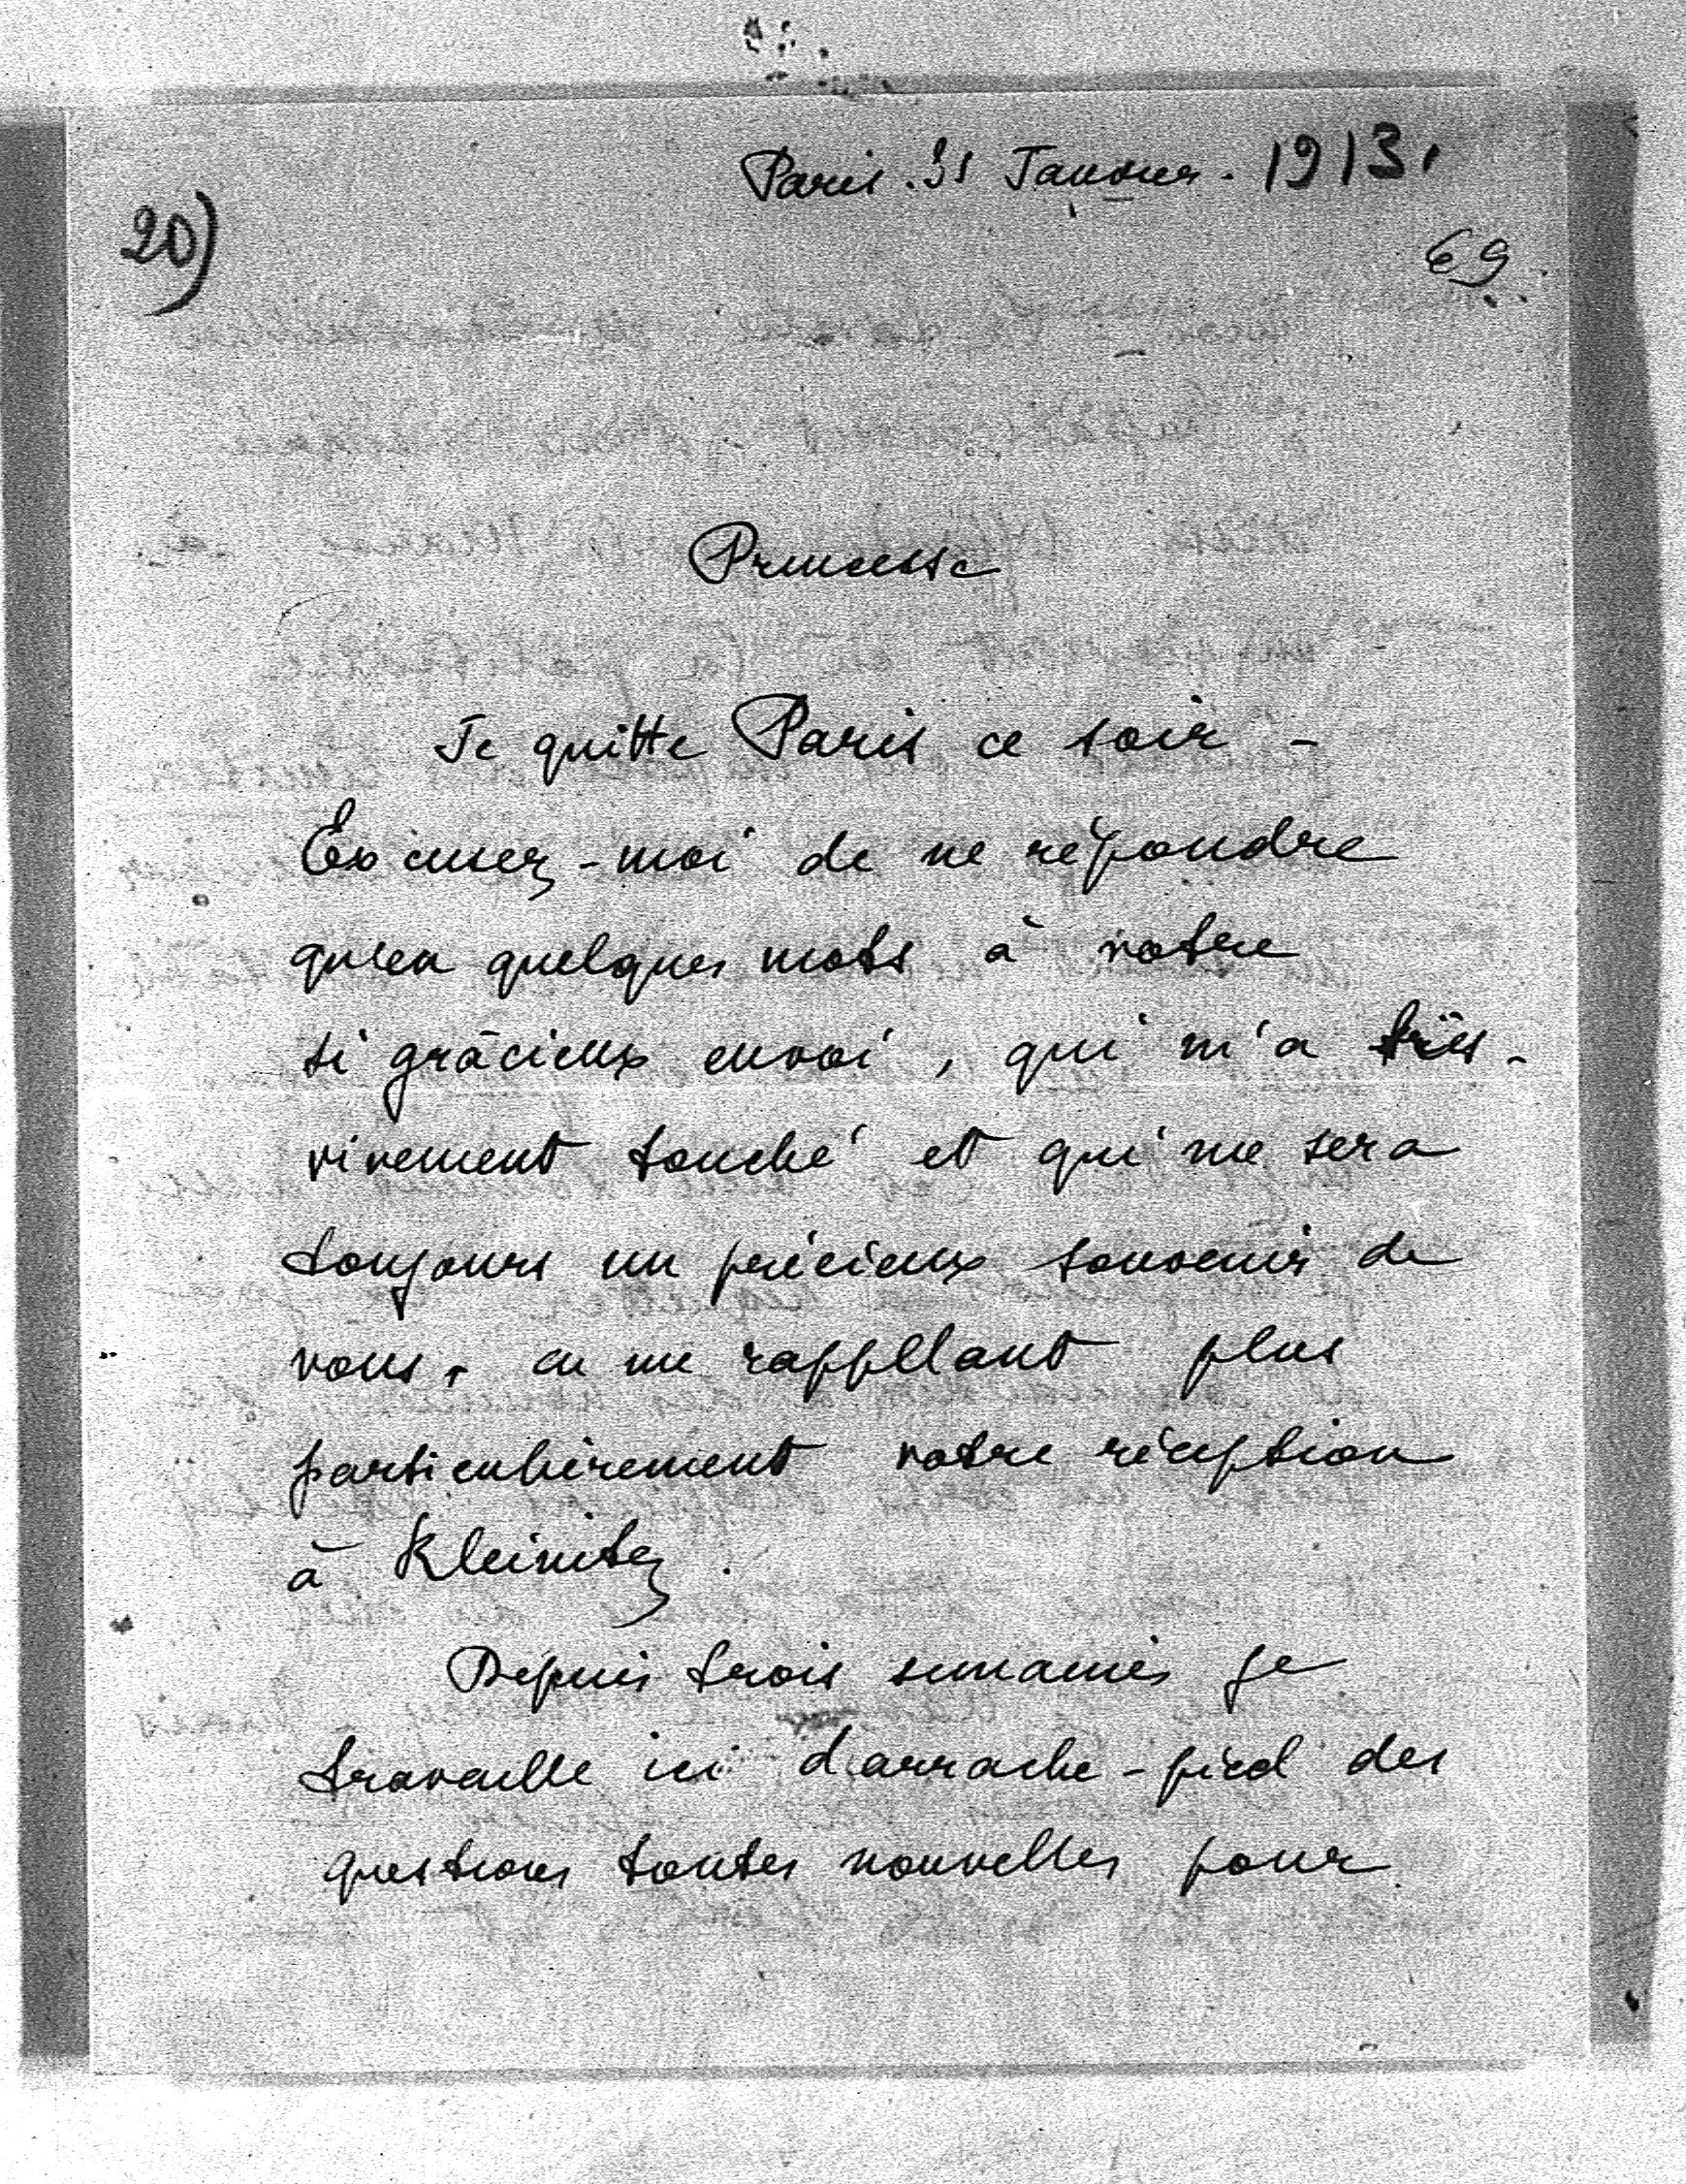 Paris. 31 Janvier. 1913.
20)
69
Princesse
Je quitte Paris ce soir -
Excusez-moi de ne répondre
qu'en quelques mots à votre
si grâcieux envoi, qui m'a très-
vivement touché et qui me sera
toujours un précieux souvenir de
vous, en me rappellant plus
particulièrement votre réception
à Kleinitz.
Depuis trois semaines je
travaille ici d'arrache-pied des
questions toutes nouvelles pour